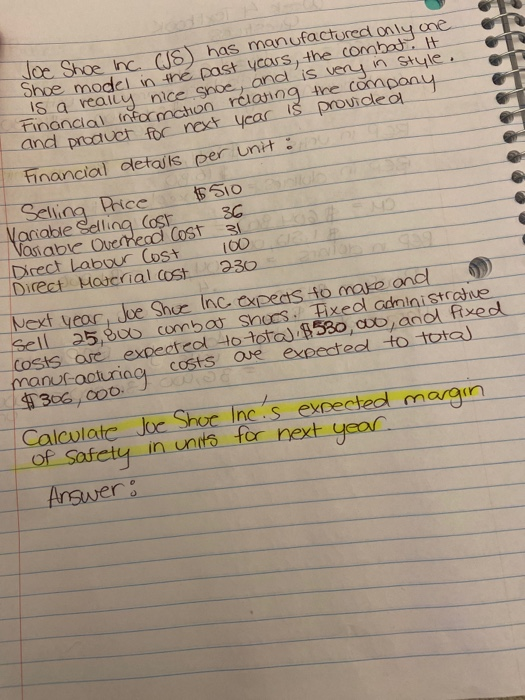 Joe Shoe Inc. (JS) has manufactured only one
Shoe model in the past years, the combat. It
is a really nice shoe, and is very in style.
Financial information relating the company
and product for next year is provided
Financial details per unit:
Selling Price $510
Variable Selling Cost 36
Variable Overhead Cost 31
Direct Labour Cost 100
Direct Material cost 230
Next year, Joe Shoe Inc expects to make and
sell 25,800 combat shoes. Fixed administrative
costs are expected to total $580,000, and fixed
manufacturing costs are expected to total
$306,000.
Calculate Joe Shoe Inc.'s expected margin
of safety in units for next year.
Answer: